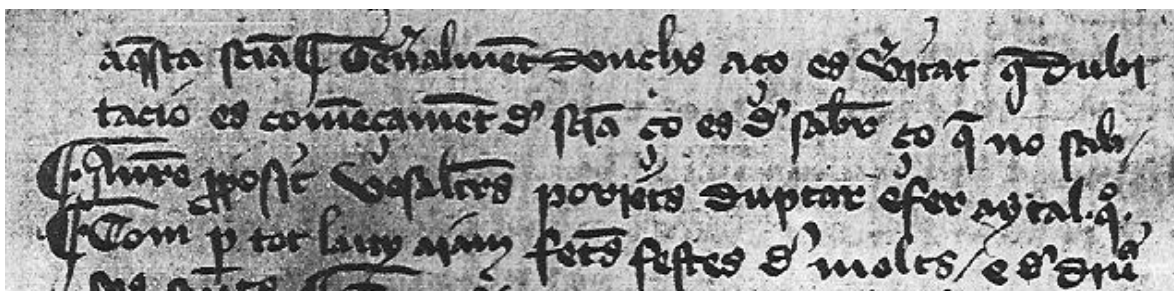 aq̄sta sciā ¶ Gen̄alment̄ donchs aço es v̓itat q̄ dubi
tacio es comēcamēt d' sciā ço es d' sab̄r ço q̄ no sab /
¶ nr̄e ꝓposit v̓os alt̄rs poriets duptar e fer aytal. q̊.
¶ Com ꝑ tot luny aiam fetes festes d' molts / e d' diu̓